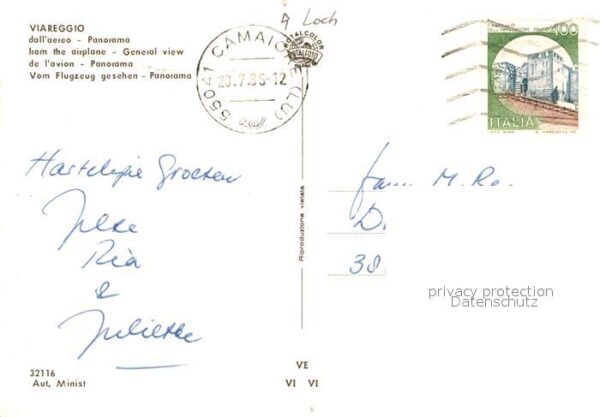 VIAREGGIO
dall'aereo - Panorama
from the airplane - General view
de l'avion - Panorama
Vom Flugzeug gesehen - Panorama
9 Loch
55041 CAMAIORE (LU)
TOTALCOLOR
100
ITALIA
Hartelijke Groeten
Ria
&
Juliette
Riproduzione vietata
Fam. M. Ro.
D.
38
privacy protection
Datenschutz
32116
Aut. Minist
VE
VI VI